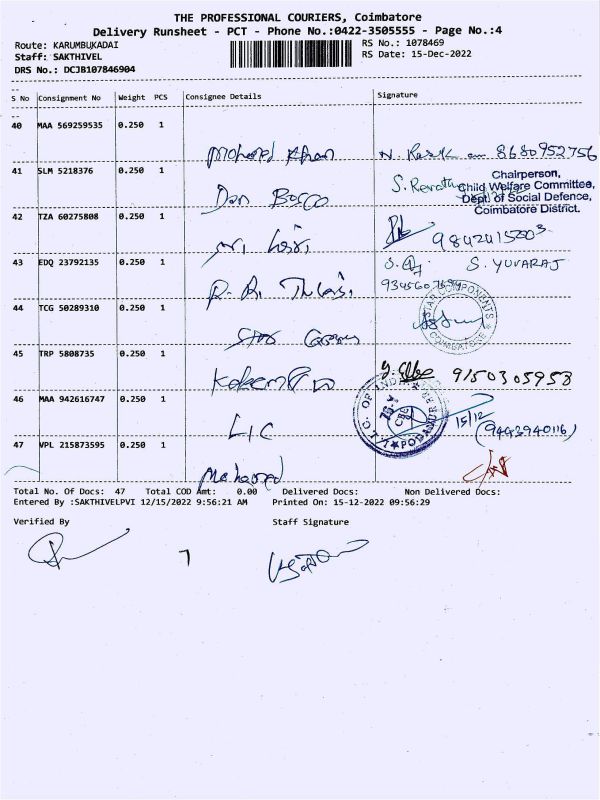 THE PROFESSIONAL COURIERS, Coimbatore
Delivery Runsheet - PCT - Phone No.:0422-3505555 - Page No.:4
Route: KARUMBUKADAI
RS No.: 1078469
Staff: SAKTHIVEL
RS Date: 15-Dec-2022
DRS No.: DCJB107846904
S No Consignment No Weight PCS Consignee Details Signature
40 MAA 569259535 0.250 1
Mohamed Khan 8680952756
41 SLM 5218376 0.250 1
Don Bosco S. Revathi
Chairperson,
Child Welfare Committee,
Dept. of Social Defence,
Coimbatore District.
42 TZA 60275808 0.250 1
43 EDQ 23792135 0.250 1
S. YUVARAJ
44 TCG 50289310 0.250 1
Star
STAR COMPONENTS
COIMBATORE
45 TRP 5808735 0.250 1
9150305953
46 MAA 942616747 0.250 1
LIC 15/12 (9443940116)
L.I.C. OF INDIA
47 VPL 215873595 0.250 1
Mohamed
Total No. Of Docs: 47 Total COD Amt: 0.00 Delivered Docs: Non Delivered Docs:
Entered By :SAKTHIVELPVI 12/15/2022 9:56:21 AM Printed On: 15-12-2022 09:56:29
Verified By Staff Signature